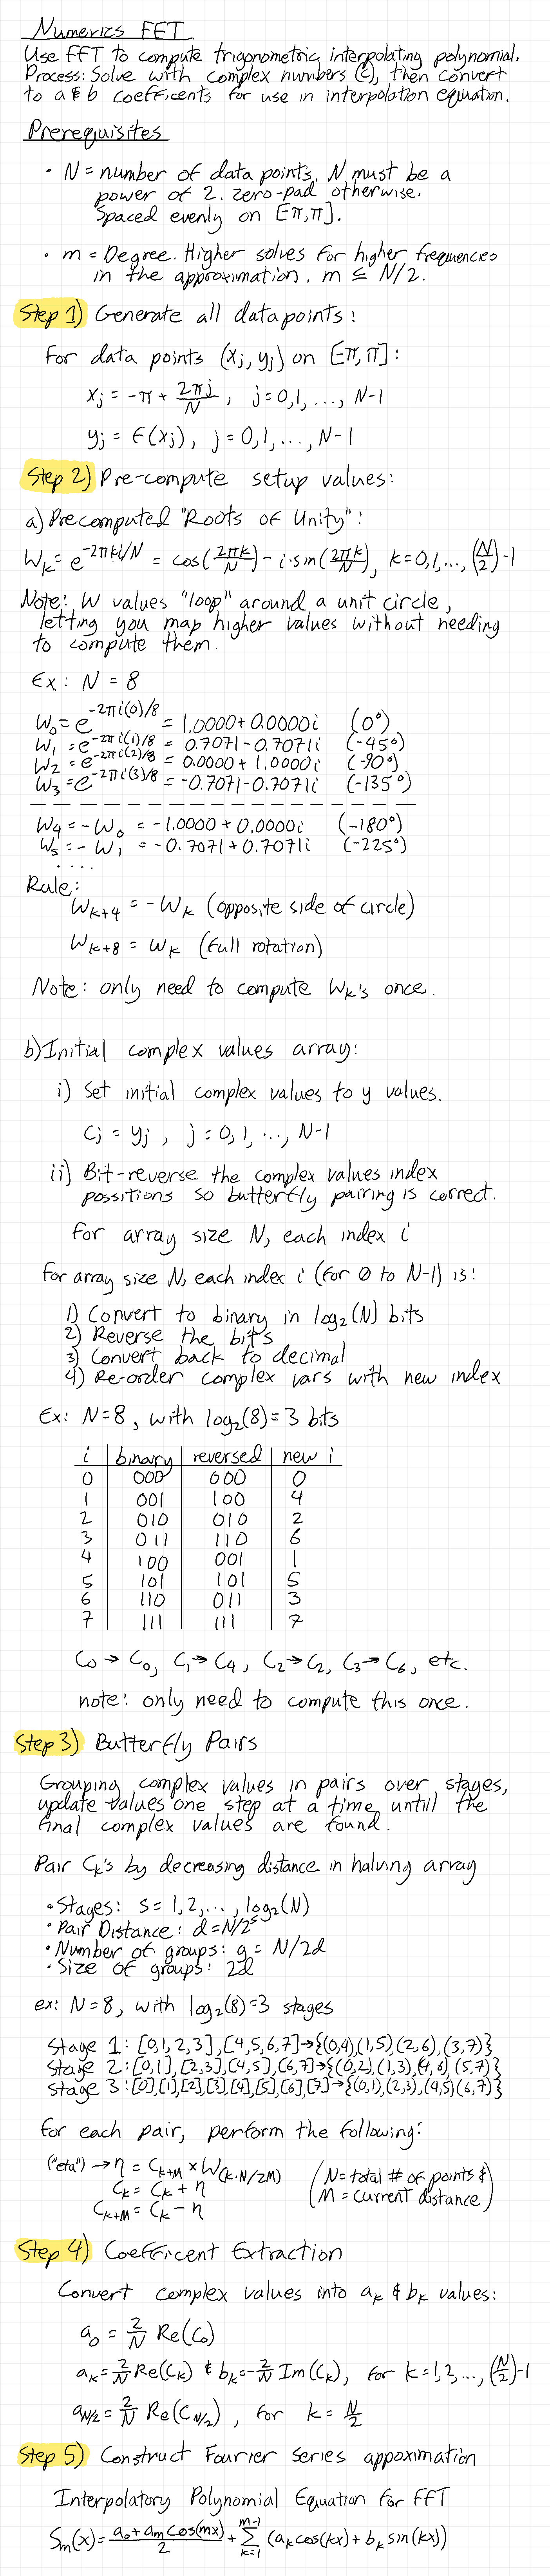 Numerics FFT
Use FFT to compute trigonometric interpolating polynomial.
Process: Solve with complex numbers (C), then convert
to a & b coefficents for use in interpolation equation.
Prerequisites
• N = number of data points. N must be a
power of 2. zero-pad otherwise.
Spaced evenly on [-π,π].
• m = Degree. Higher solves for higher frequencies
in the approximation. m ≤ N/2.
Step 1) Generate all datapoints:
For data points (xj, yj) on [-π, π]:
xj = -π + 2πj/N, j=0,1, ..., N-1
yj = f(xj), j=0,1,..., N-1
Step 2) Pre-compute setup values:
a) Precomputed "Roots of Unity":
Wk = e^-2πki/N = cos(2πk/N) - i·sin(2πk/N), k=0,1,..., (N/2)-1
Note: W values "loop" around a unit circle,
letting you map higher values without needing
to compute them.
Ex: N = 8
W0 = e^-2πi(0)/8 = 1.0000 + 0.0000i (0°)
W1 = e^-2πi(1)/8 = 0.7071 - 0.7071i (-45°)
W2 = e^-2πi(2)/8 = 0.0000 + 1.0000i (-90°)
W3 = e^-2πi(3)/8 = -0.7071 - 0.7071i (-135°)
W4 = -W0 = -1.0000 + 0.0000i (-180°)
W5 = -W1 = -0.7071 + 0.7071i (-225°)
....
Rule:
Wk+4 = -Wk (opposite side of circle)
Wk+8 = Wk (full rotation)
Note: only need to compute Wk's once.
b) Initial complex values array:
i) Set initial complex values to y values.
Cj = yj, j=0,1, ..., N-1
ii) Bit-reverse the complex values index
possitions so butterfly pairing is correct.
For array size N, each index i
For array size N, each index i (for 0 to N-1) is:
1) Convert to binary in log2(N) bits
2) Reverse the bits
3) Convert back to decimal
4) Re-order complex vars with new index
Ex: N=8, with log2(8)=3 bits
i | binary | reversed | new i
0 | 000 | 000 | 0
1 | 001 | 100 | 4
2 | 010 | 010 | 2
3 | 011 | 110 | 6
4 | 100 | 001 | 1
5 | 101 | 101 | 5
6 | 110 | 011 | 3
7 | 111 | 111 | 7
C0 → C0, C1 → C4, C2 → C2, C3 → C6, etc.
note: only need to compute this once.
Step 3) Butterfly Pairs
Grouping complex values in pairs over stages,
update values one step at a time untill the
final complex values are found.
Pair Ck's by decreasing distance in halving array
• Stages: s = 1,2,..., log2(N)
• Pair Distance: d = N/2^s
• Number of groups: g = N/2d
• Size of groups: 2d
ex: N=8, with log2(8)=3 stages
Stage 1: [0,1,2,3],[4,5,6,7]→{(0,4)(1,5)(2,6),(3,7)}
Stage 2: [0,1],[2,3],[4,5],[6,7]→{(0,2),(1,3),(4,6)(5,7)}
stage 3: [0],[1],[2],[3],[4],[5],[6],[7]→{(0,1)(2,3),(4,5)(6,7)}
For each pair, perform the following:
("eta") → η = Ck+M × W(k·N/2M)
Ck = Ck + η
Ck+M = Ck - η
(N = total # of points &
M = current distance)
Step 4) Coefficent Extraction
Convert complex values into ak & bk values:
a0 = 2/N Re(C0)
ak = 2/N Re(Ck) & bk = -2/N Im(Ck), for k=1,2,..., (N/2)-1
aN/2 = 2/N Re(CN/2), for k = N/2
Step 5) Construct Fourier Series appoximation
Interpolatory Polynomial Equation for FFT
Sm(x) = (a0 + am cos(mx))/2 + Σ k=1 m-1 (ak cos(kx) + bk sin(kx))